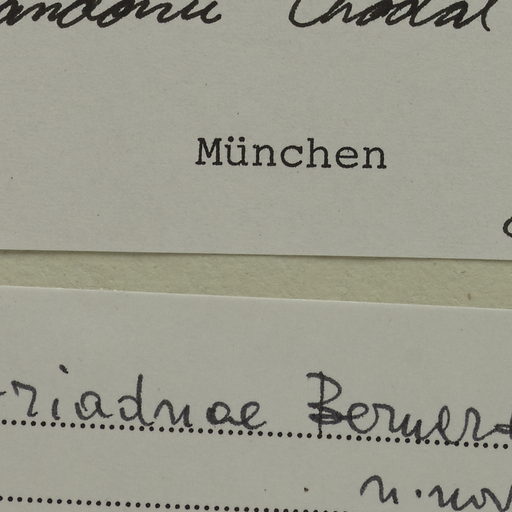 andonii Chodat
München
riadnae Berner
n. nov